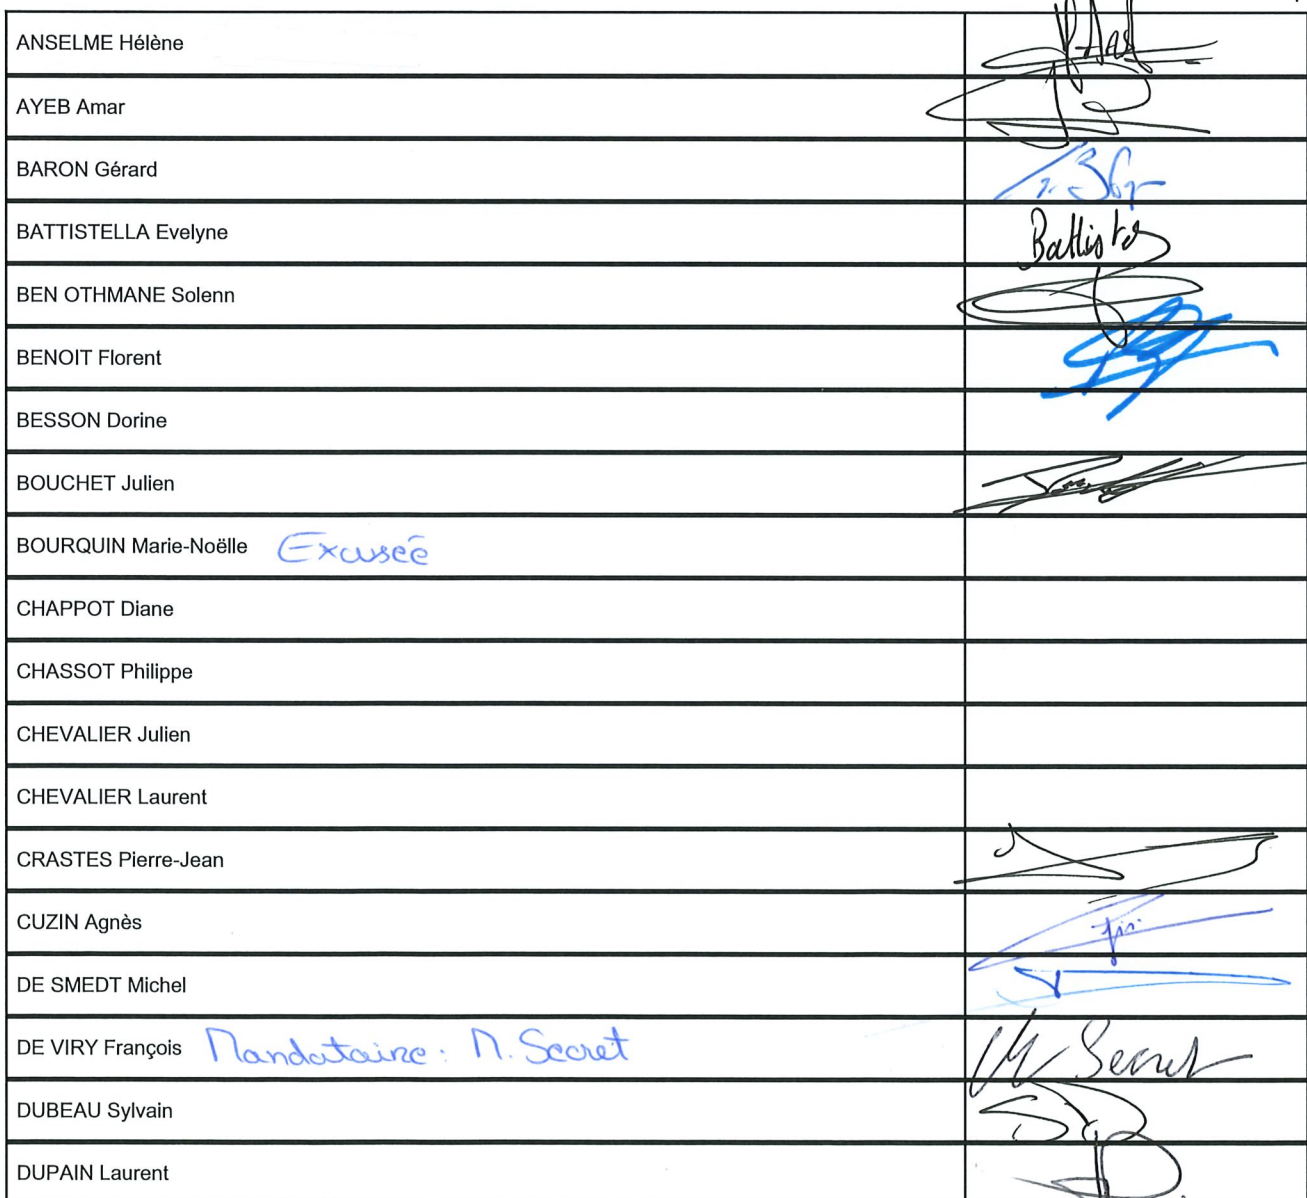 ANSELME Hélène
AYEB Amar
BARON Gérard
BATTISTELLA Evelyne Battistel
BEN OTHMANE Solenn
BENOIT Florent
BESSON Dorine
BOUCHET Julien
BOURQUIN Marie-Noëlle Excusée
CHAPPOT Diane
CHASSOT Philippe
CHEVALIER Julien
CHEVALIER Laurent
CRASTES Pierre-Jean
CUZIN Agnès
DE SMEDT Michel
DE VIRY François Mandataire: M. Secret M Secret
DUBEAU Sylvain
DUPAIN Laurent